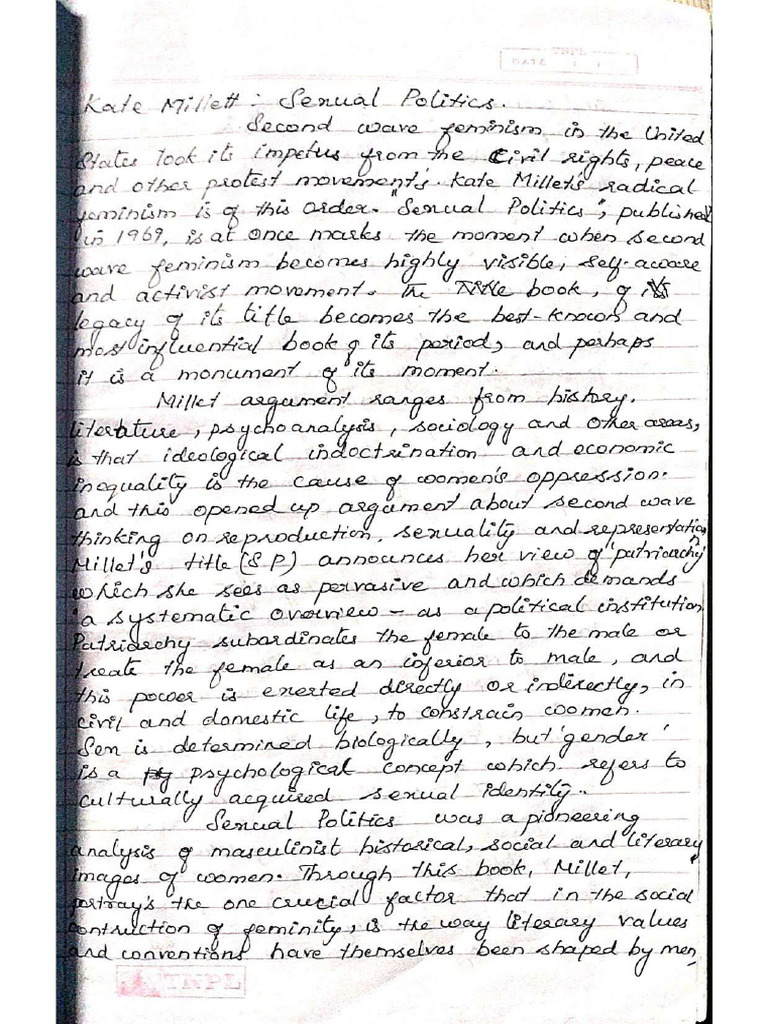 TNPL
DATE
Kate Millett : Sexual Politics.
Second wave feminism in the United
States took its impetus from the Civil rights, peace
and other protest movement's. Kate Millet's radical
feminism is of this order. "Sexual Politics", published
in 1969, is at once marks the moment when second
wave feminism becomes highly visible, self-aware
and activist movement. The Title book, of its
legacy of its title becomes the best-known and
most influential book of its period, and perhaps
it is a monument of its moment.
Millet argument ranges from history,
literature, psychoanalysis, sociology and other areas,
is that ideological indoctrination and economic
inequality is the cause of women's oppression.
and this opened up argument about second wave
thinking on reproduction, sexuality and representation,
Millet's title (S.P) announces her view of "patriarchy"
which she sees as pervasive and which demands
'a systematic overview - as a political institution.
Patriarchy subordinates the female to the male or
treate the female as an inferior to male, and
this power is exerted directly or indirectly, in
civil and domestic life, to constrain women.
Sex is determined biologically, but 'gender'
is a psychological concept which refers to
culturally acquired sexual identity.
Sexual Politics was a pioneering
analysis of masculinist historical, social and literary
images of women. Through this book, Millet,
portray's the one crucial factor that in the social
contruction of feminity, is the way literary values
and conventions have themselves been shaped by men,
TNPL